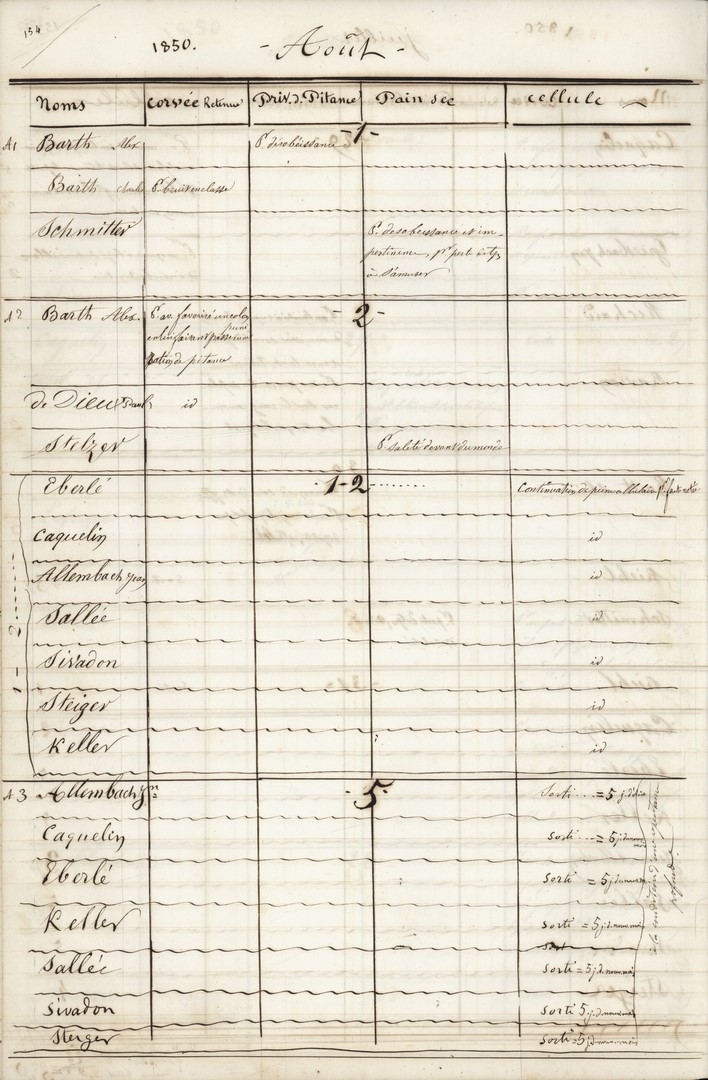 154
1850. - Août -
Noms corvée Retenue Priv. d. Pitance Pain sec cellule
-1-
A1 Barth Alex P. désobéissance
Barth Charles P. bruit en classe
Schmitter P. desobeissance et im-
pertinence, pr
à s'amuser
-2-
A2 Barth Alex. P. av. favorisé un coleg
puni
en lui faisant passer
de pitance
de Dieu Paul id
Stelzer P. saleté devant du monde
1-2
1-2
Eberlé Continuation de peine
Caquelin id
Allembach Jean id
Sallée id
Sivadon id
Steiger id
Keller id
-5-
A3 Allembach Jn Sorti = 5 j.
Caquelin sorti = 5 j.
Eberlé sorti = 5 j.
Keller sorti = 5 j.d.
Sallée sorti = 5 j.d.
Sivadon Sorti 5 j.d.
Steiger Sorti = 5 j.
à la condition d'une repentance
profonde.